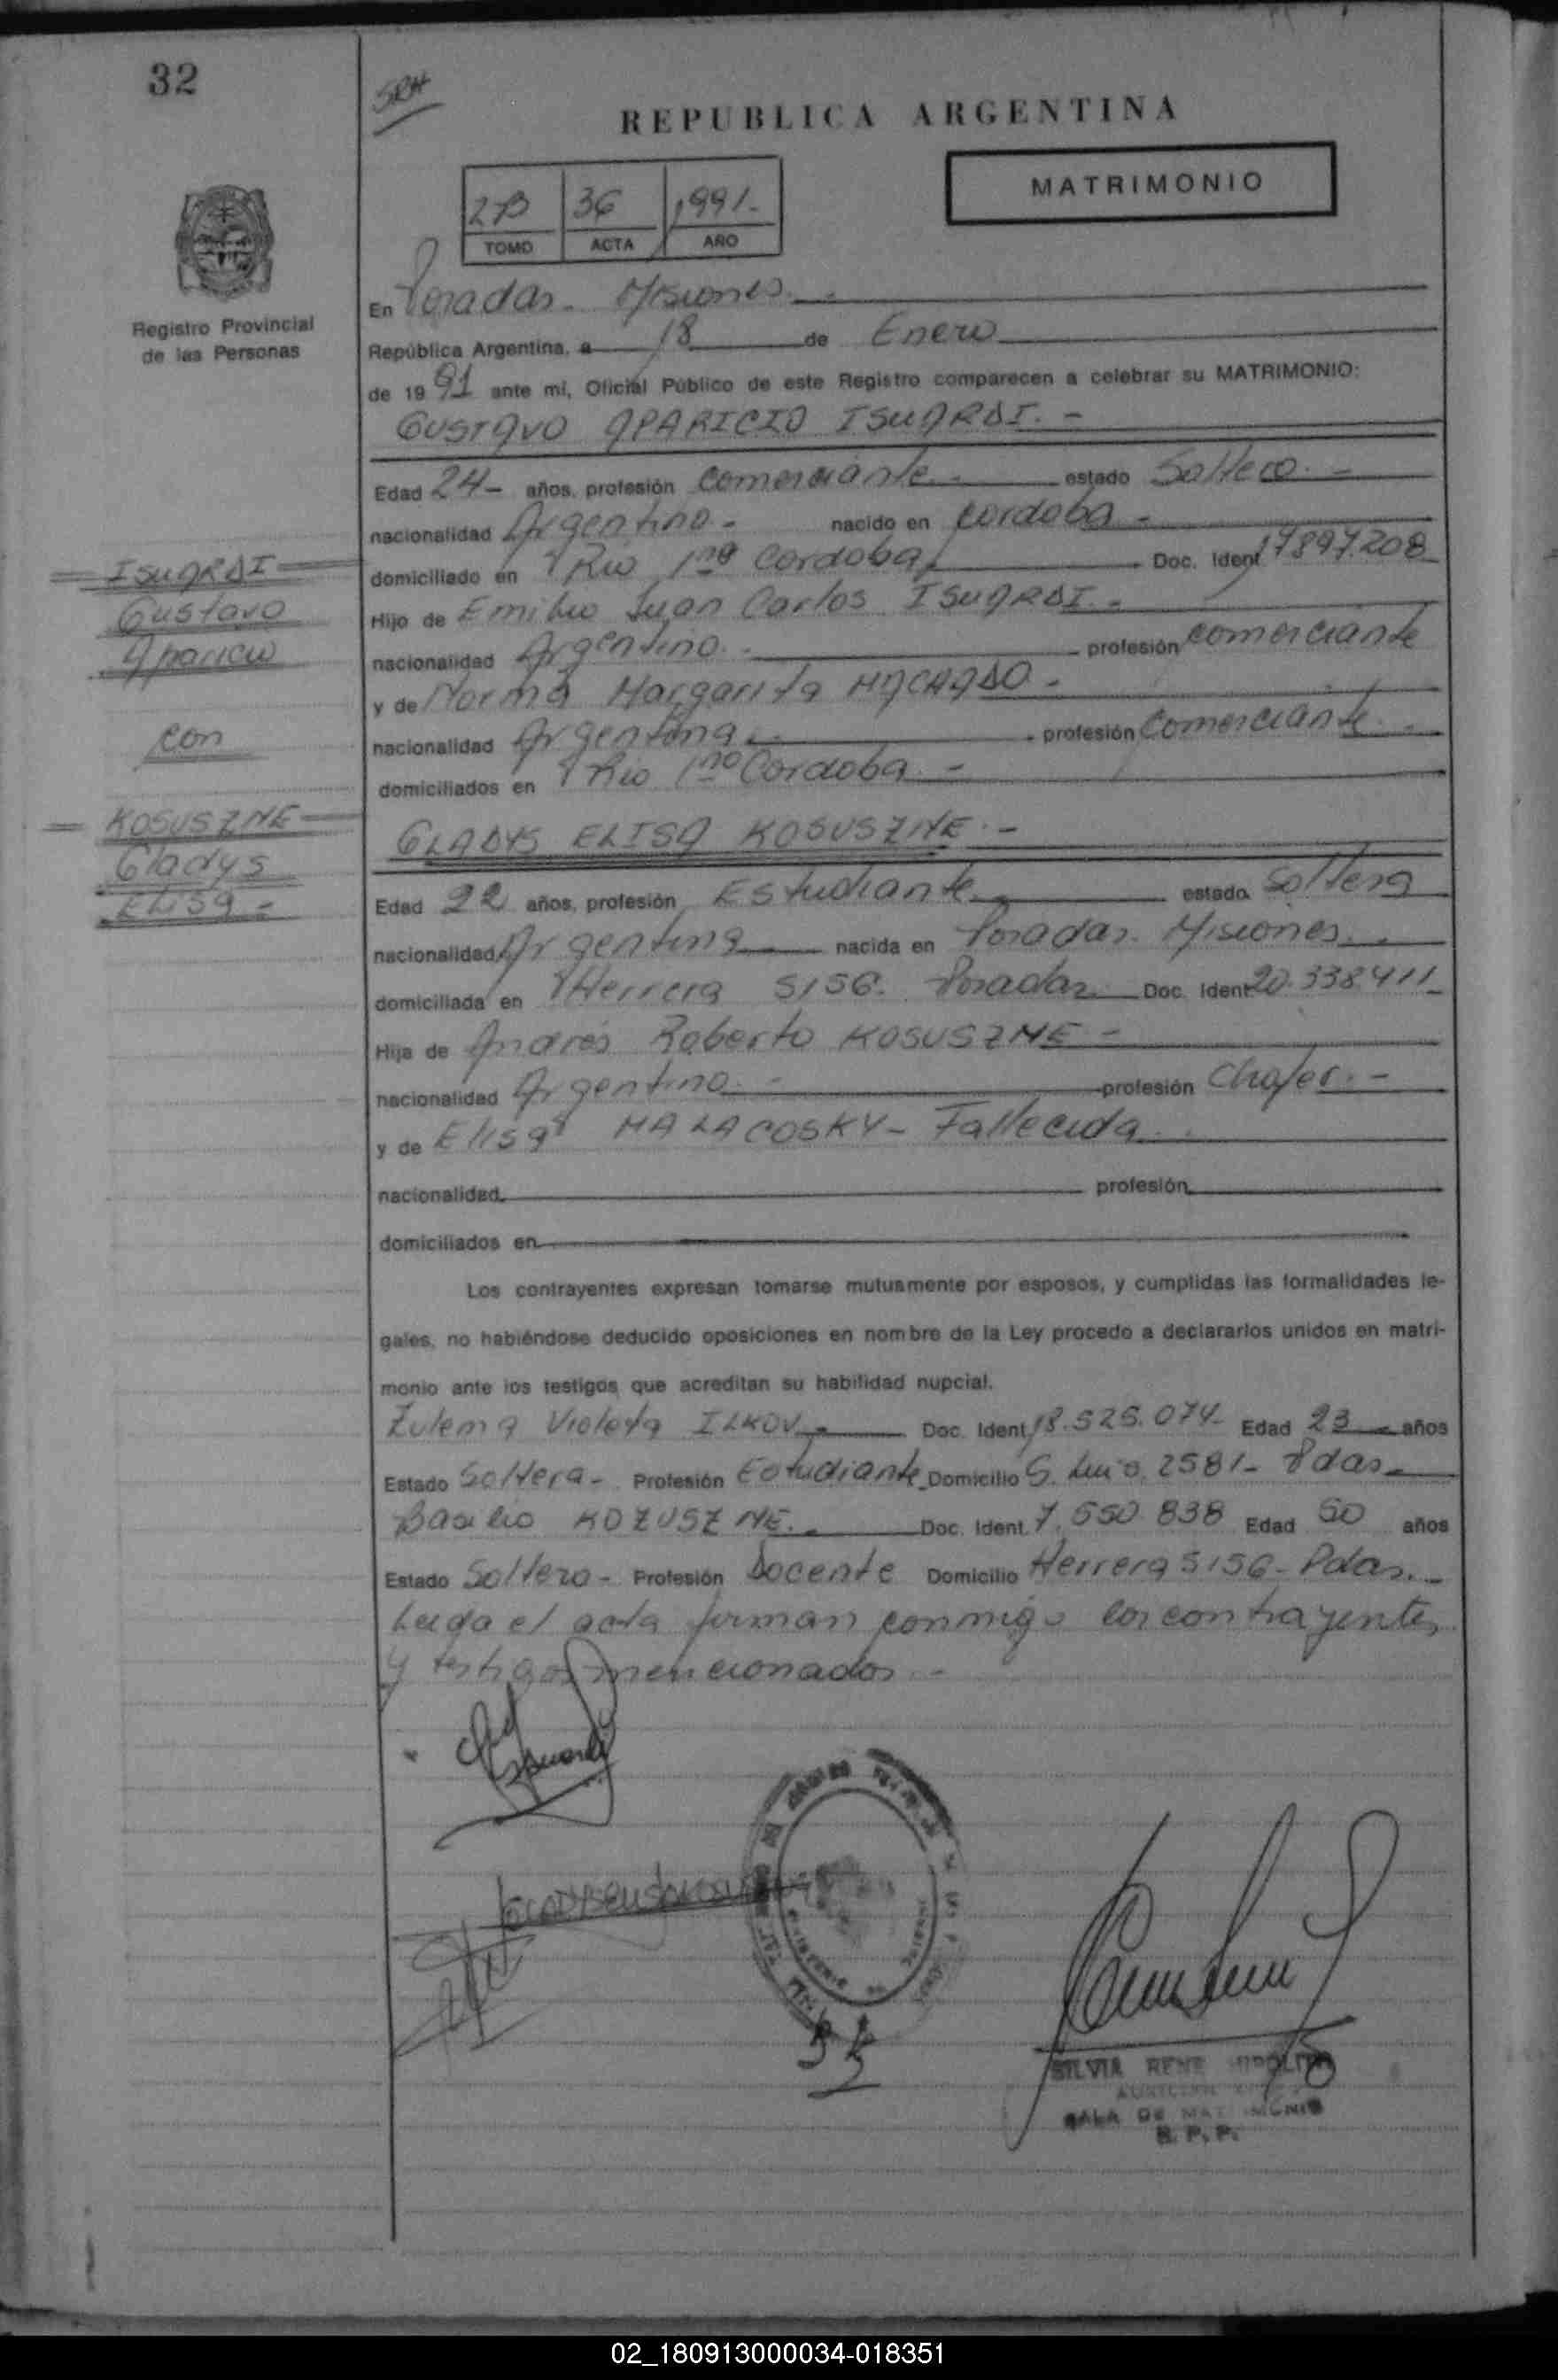 32
REPUBLICA ARGENTINA
MATRIMONIO
36 1991.-
TOMO ACTA AÑO
Registro Provincial
de las Personas
En Posadas - Misiones.-
República Argentina, a 18 de Enero
de 1991 ante mi, Oficial Público de este Registro comparecen a celebrar su MATRIMONIO:
GUSTAVO APARICIO ISUARDI.-
Edad 24- años, profesión comerciante.- estado Soltero.-
nacionalidad Argentino.- nacido en Cordoba-
domiciliado en Rio 1ro Cordoba Doc. Ident 17897.208
Hijo de Emilio Juan Carlos ISUARDI.-
nacionalidad Argentino.- profesión comerciante
y de Norma Margarita MACHADO-
nacionalidad Argentina.- profesión Comerciante.-
domiciliados en Rio 1ro Cordoba.-
ISUARDI
Gustavo
Aparicio
con
KOSUSZNE
Gladys
Elisa-
GLADYS ELISA KOSUSZNE.-
Edad 22 años, profesión Estudiante estado Soltera
nacionalidad Argentina nacida en Posadas. Misiones.-
domiciliada en Herrera 5156. Posadas Doc. Ident 20.338.411
Hija de Andrés Roberto KOSUSZNE-
nacionalidad Argentino.- profesión Chofer.-
y de Elisa MALACOSKY- Fallecida.
nacionalidad profesión
domiciliados en
Los contrayentes expresan tomarse mutuamente por esposos, y cumplidas las formalidades le-
gales, no habiéndose deducido oposiciones en nombre de la Ley procedo a declararlos unidos en matri-
monio ante los testigos que acreditan su habilidad nupcial.
Zulema Violeta ILKOV- Doc. Ident 18.525.074- Edad 23 años
Estado Soltera- Profesión Estudiante Domicilio S. Luis 2581- Pdas-
Basilio KOZUSZNE.- Doc. Ident. 7.550.838 Edad 50 años
Estado Soltero- Profesión Docente Domicilio Herrera 5156- Pdas.-
Leida el acta firman conmigo los contrayentes
y testigos mencionados.-
SILVIA RENE HIPOLITO
SALA DE MATRIMONIO
R. P. P.
02_180913000034-018351